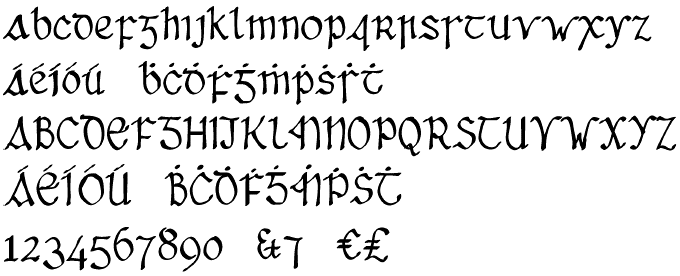 abcdefghıjklmnopqrꞃsꞅtuvwxyz
áéíóú ḃċḋḟġṁṗṡẛṫ
ABCDEFGHIJKLMNOPQRSTUVWXYZ
ÁÉÍÓÚ ḂĊḊḞĠṀṖṠṪ
1234567890 &⁊ €£